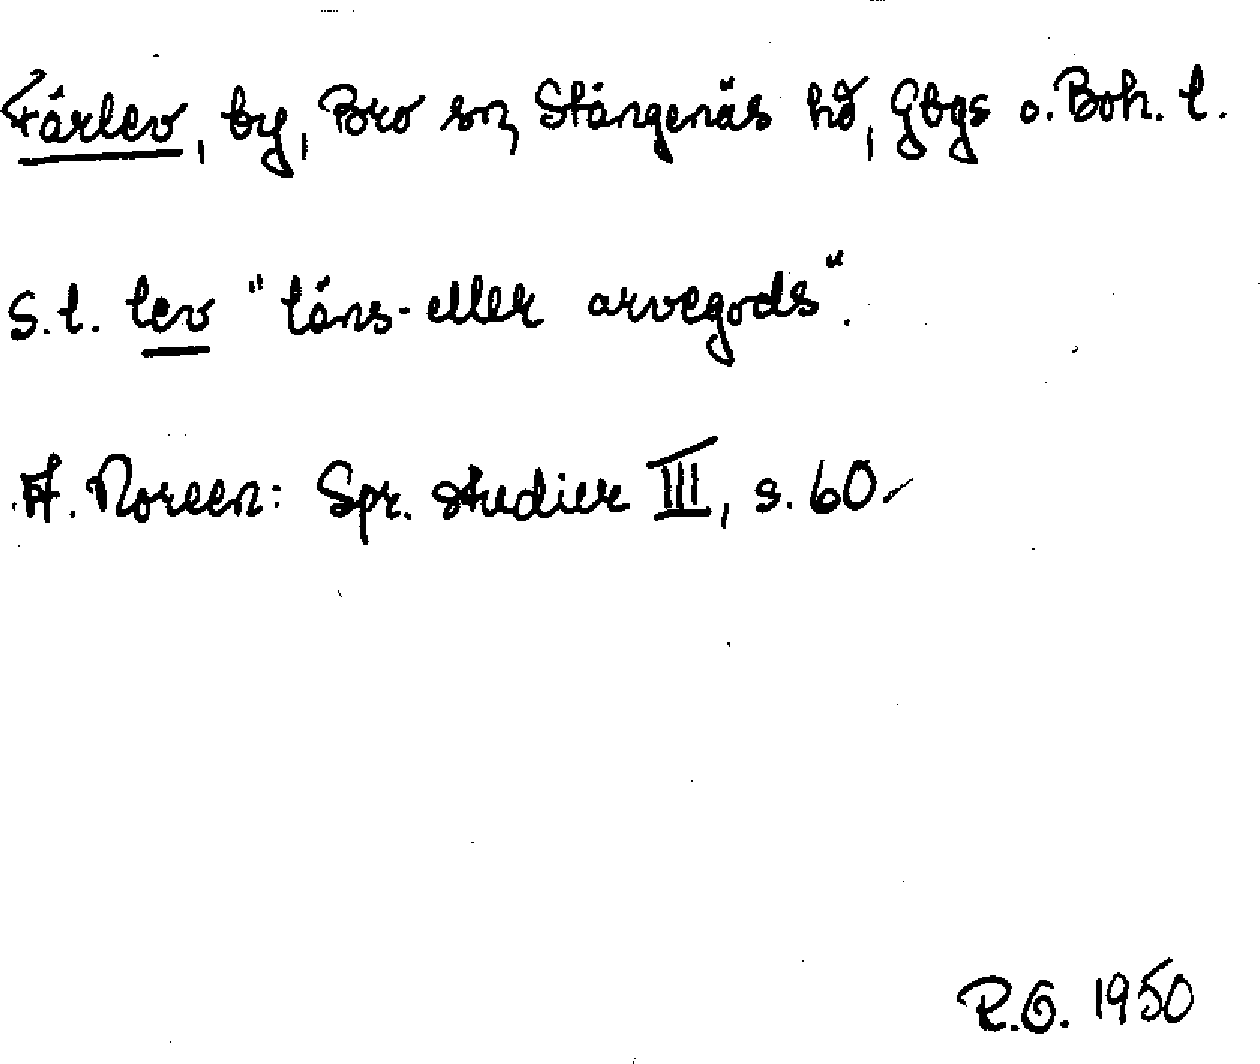 Fårlev, by, Bro sn, Stångenäs hd, Gbgs o. Boh. l.
S.l. lev "läns- eller arvegods".
A. Noreen: Spr. studier III, s. 60
R.G. 1950